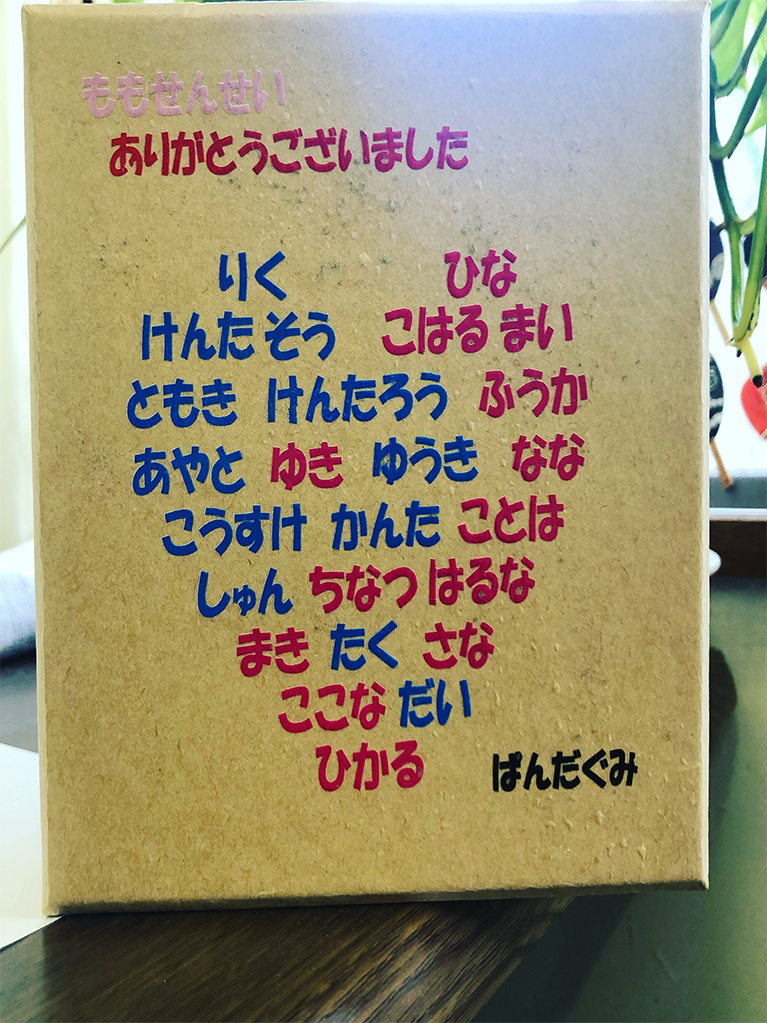 ももせんせい
ありがとうございました
りく ひな
けんた そう こはる まい
ともき けんたろう ふうか
あやと ゆき ゆうき なな
こうすけ かんた ことは
しゅん ちなつ はるな
まき たく さな
ここな だい
ひかる
ぱんだぐみ